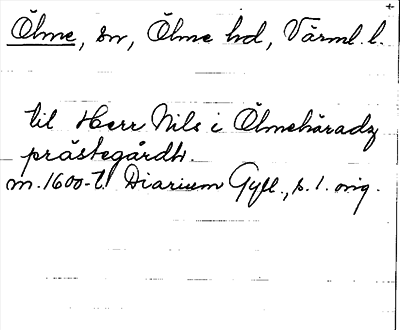 Ölme, sn, Ölme hd, Värml. l.
til Herr Nils i Ölmeháradz
prästegårdh.
m. 1600-t. Diarium Gyll., s. 1. orig.